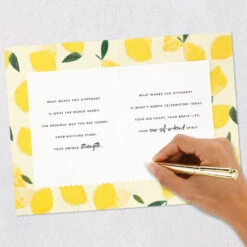 WHAT MAKES YOU DIFFERENT
IS WHAT THE WORLD NEEDS.
THE ORIGINAL WAY YOU SEE THINGS.
YOUR EXCITING STORY.
YOUR UNIQUE strength.
WHAT MAKES YOU DIFFERENT
IS WHAT'S WORTH CELEBRATING TODAY.
YOUR BIG HEART, YOUR BRAVE LIFE,
YOUR one-of-a-kind SPIRIT.